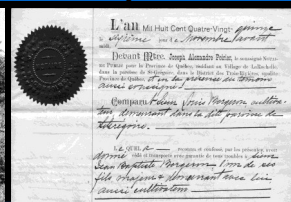 L'an Mil Huit Cent Quatre-Vingt-quinze
le sixième jour de Novembre avant
midi.
Devant Mtre. Joseph Alexandre Poirier, le soussigné Notai-
re Public pour la Province de Québec, résidant au Village de
dans la paroisse de St-Grégoire, dans le District des Trois-Rivières,
Province de Québec, et en présence du témoin
aussi soussigné :
Comparu : Sieur Louis Bergeron cultiva-
teur demeurant dans la dite paroisse de
St Grégoire.
LEQUEL a reconnu et confessé, par les présentes, avoir
donné cédé et transporté avec garantie de tous troubles à Sieur
Jean Baptiste Bergeron l'un de ses
fils majeur & demeurant avec lui
aussi cultivateur